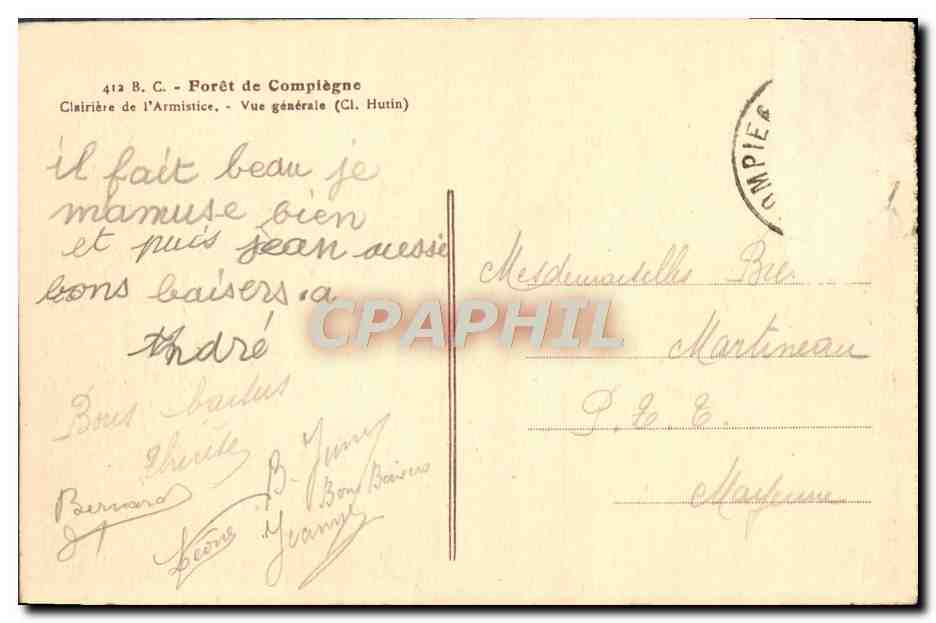 412 B. C. - Forêt de Compiègne
Clairière de l'Armistice. - Vue générale (Cl. Hutin)
il fait beau je
mamuse bien
et puis jean aussi
bons baisers. a
André
Bons
Thérèse
Bernard
B. Jeanny
Bons Baisers
Léone
Jeanne
OMPIE
Mesdemoiselles
Martineau
P. T. T.
Mayenne
CPAPHIL